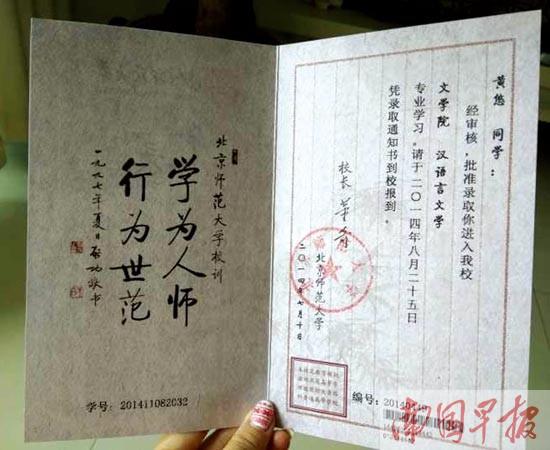 北京师范大学校训
学为人师
行为世范
一九九七年夏日 启功敬书
学号：201411082032
黄悠 同学：
经审核，批准录取你进入我校
文学院 汉语言文学
专业学习。请于二〇一四年八月二十五日
凭录取通知书到校报到。
校长 董奇
北京师范大学
二〇一四年七月十日
编号：
南国早报